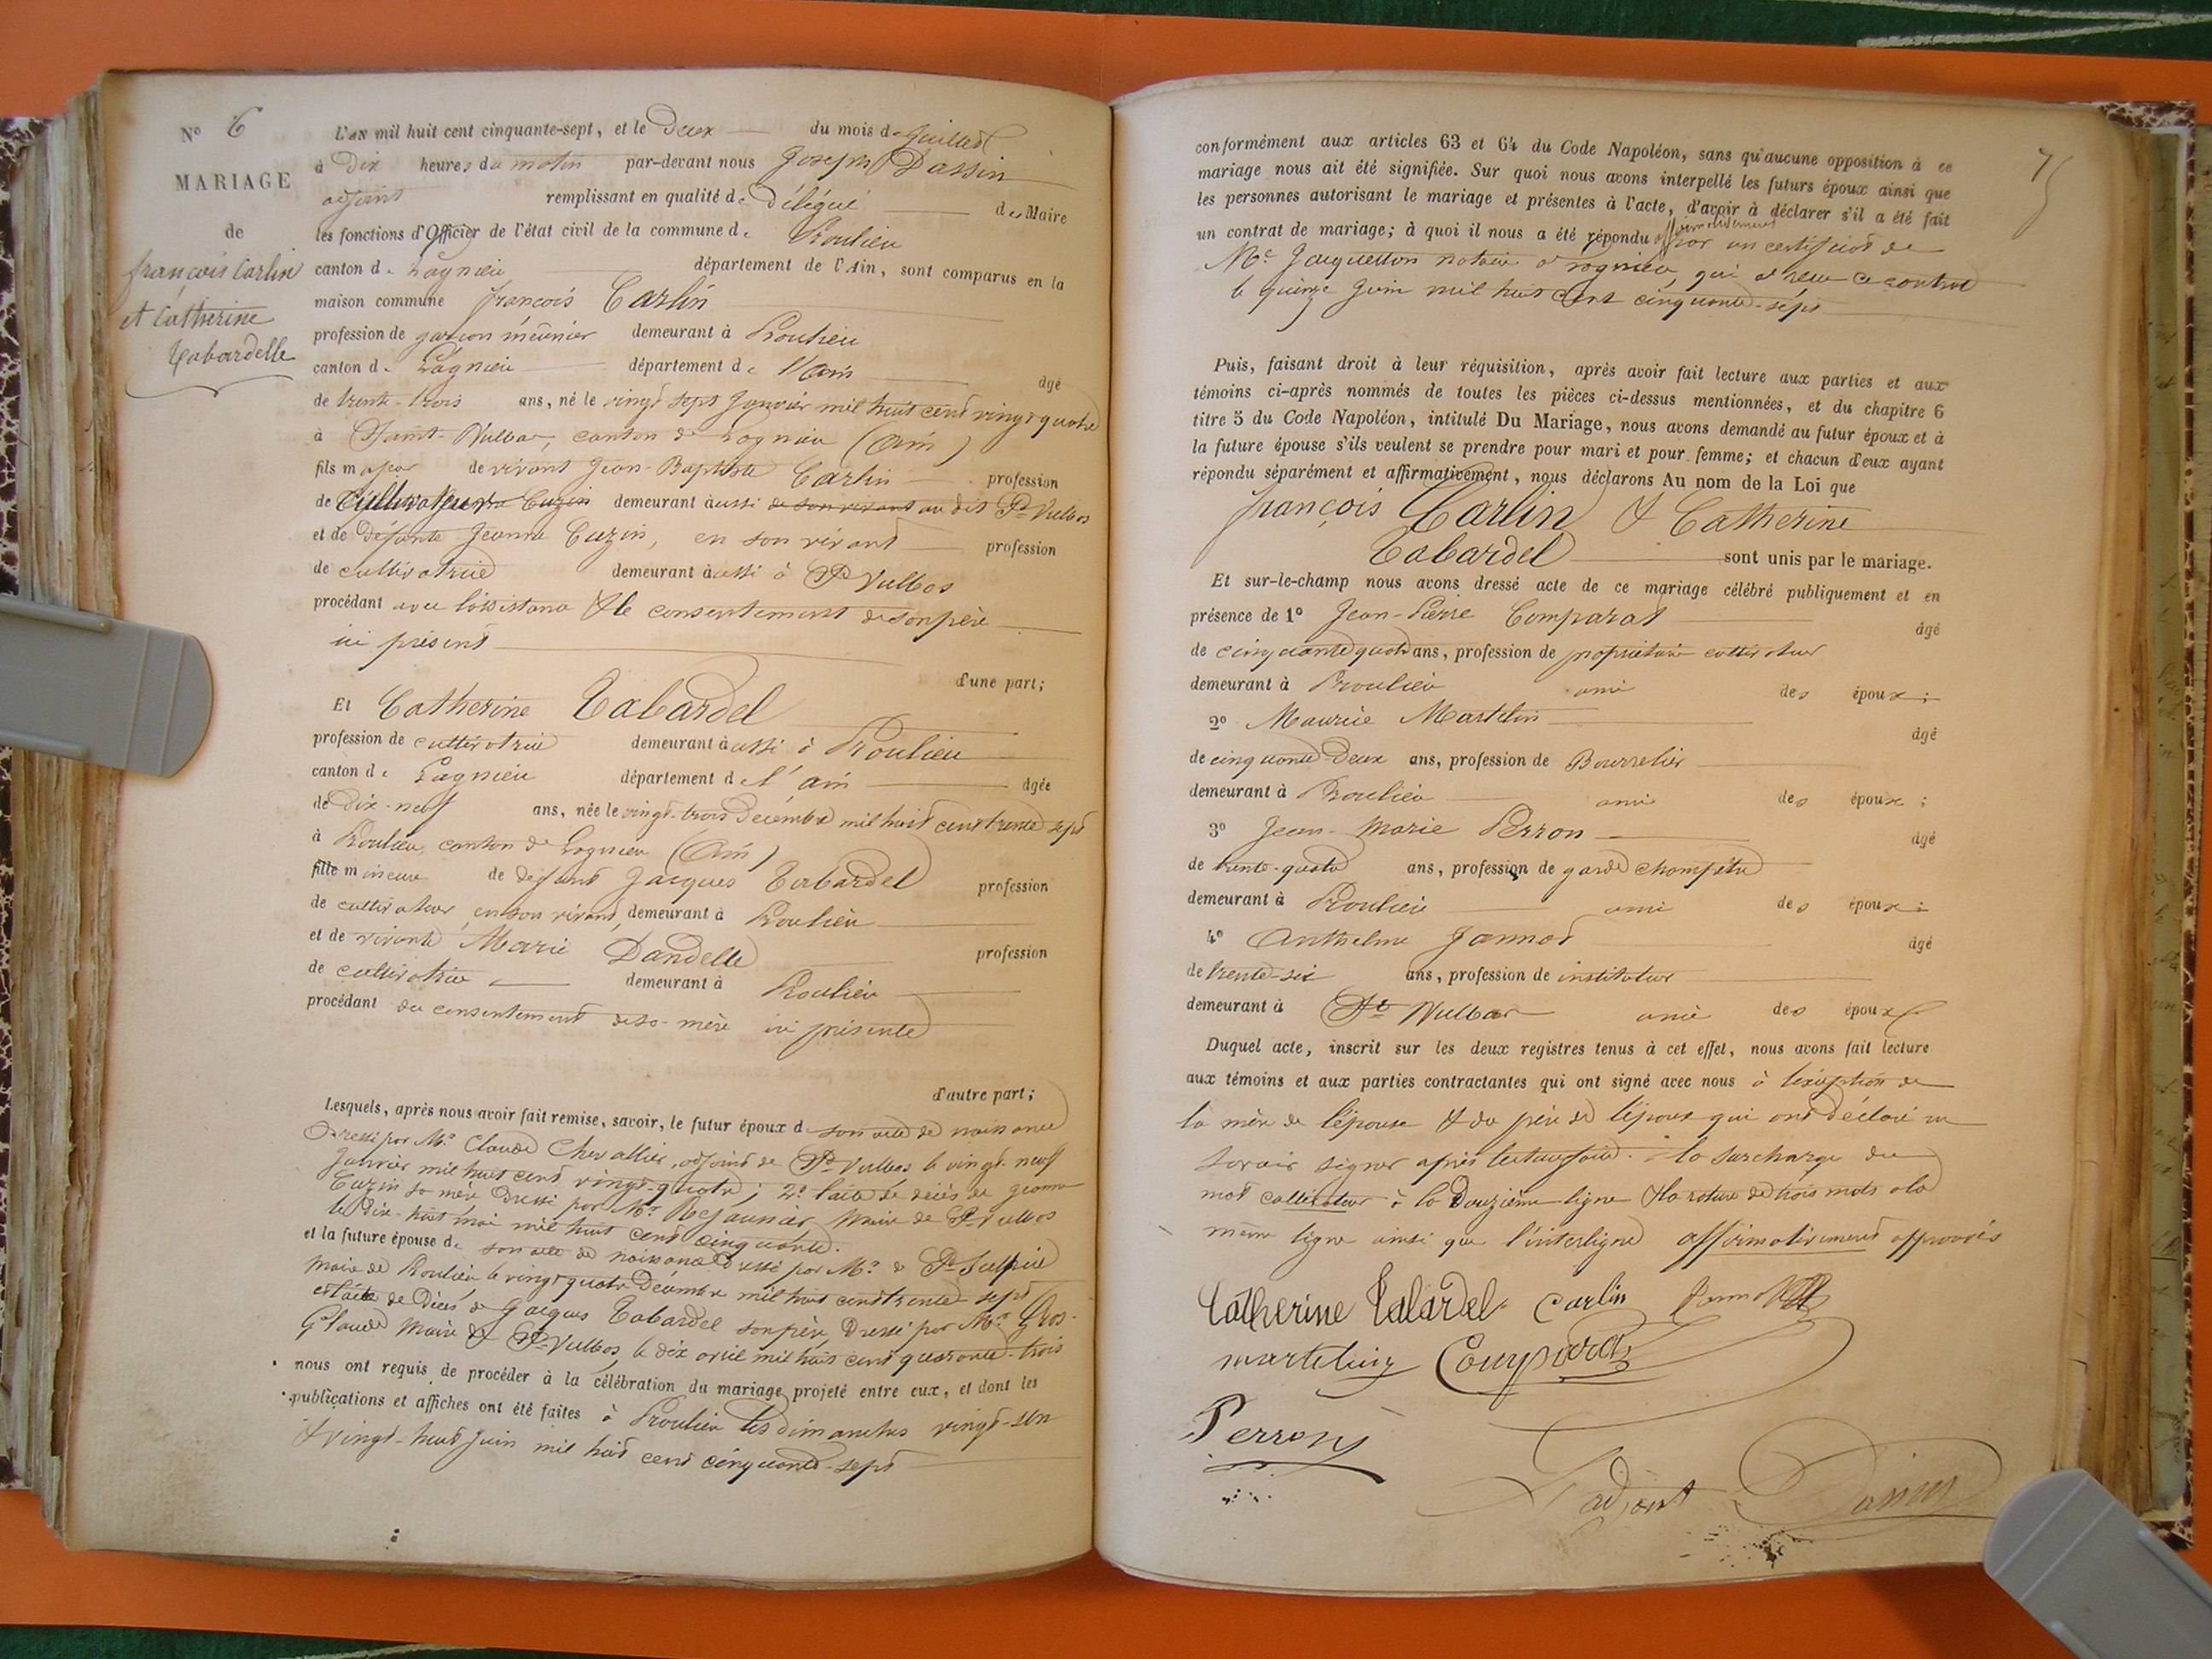 N° 6
MARIAGE
de
françois Carlin
et Catherine
Tabardelle
L'an mil huit cent cinquante-sept, et le Deux du mois de Juillet
à Dix heures du matin par-devant nous Joseph Dassin
adjoint remplissant en qualité de Délégué des Maire
les fonctions d'Officier de l'état civil de la commune de Proulieu
canton de Lagnieu département de l'Ain, sont comparus en la
maison commune françois Carlin
profession de garçon meûnier demeurant à Proulieu
canton de Lagnieu département de l'Ain âgé
de trente-trois ans, né le vingt sept Janvier mil huit cent vingt quatre
à Saint-Vulbas, canton de Lagnieu (Ain)
fils majeur de vivant Jean-Baptiste Carlin profession
de Cultivateur Cuzin demeurant aussi de son vivant au dit St Vulbas
et de Défunte Jeanne Cuzin, en son vivant profession
de cultivatrice demeurant aussi à St Vulbas
procédant avec l'assistance & le consentement de son père
ici présent
d'une part;
Et Catherine Tabardel
profession de cultivatrice demeurant aussi à Proulieu
canton de Lagnieu département de l'Ain âgée
de Dix-neuf ans, née le vingt-trois Décembre mil huit cent trente sept
à Proulieu, canton de Lagnieu (Ain)
fille mineure de défunt Jacques Tabardel profession
de cultivateur, en son vivant, demeurant à Proulieu
et de vivante Marie Dandelle profession
de cultivatrice demeurant à Proulieu
procédant du consentement de sa mère ici présente
d'autre part;
Lesquels, après nous avoir fait remise, savoir, le futur époux de son acte de naissance
Dressé par Mr Claude Chevallier, adjoint de St Vulbas le vingt-neuf
Janvier mil huit cent vingt-quatre; 2° l'acte de décès de Jeanne
Cuzin sa mère Dressé par Mr Maire de St Vulbas
le dix-huit mai mil huit cent cinquante.
et la future épouse de son acte de naissance Dressé par Mr de St Sulpice
Maire de Proulieu le vingt quatre Décembre mil huit cent trente sept
et l'acte de Décès de Jacques Tabardel son père, Dressé par Mr Gros-
Claude Maire de St Vulbas, le dix avril mil huit cent quarante-trois
nous ont requis de procéder à la célébration du mariage projeté entre eux, et dont les
publications et affiches ont été faites à Proulieu les dimanches vingt-un
& vingt-huit Juin mil huit cent cinquante-sept
7
conformément aux articles 63 et 64 du Code Napoléon, sans qu'aucune opposition à ce
mariage nous ait été signifiée. Sur quoi nous avons interpellé les futurs époux ainsi que
les personnes autorisant le mariage et présentes à l'acte, d'avoir à déclarer s'il a été fait
un contrat de mariage; à quoi il nous a été répondu affirmativement par un certificat de
Me Jacquetton notaire à Lagnieu, qui a reçu ce contrat
le quinze Juin mil huit cent cinquante-sept
Puis, faisant droit à leur réquisition, après avoir fait lecture aux parties et aux
témoins ci-après nommés de toutes les pièces ci-dessus mentionnées, et du chapitre 6
titre 5 du Code Napoléon, intitulé Du Mariage, nous avons demandé au futur époux et à
la future épouse s'ils veulent se prendre pour mari et pour femme; et chacun d'eux ayant
répondu séparément et affirmativement, nous déclarons Au nom de la Loi que
françois Carlin & Catherine
Tabardel sont unis par le mariage.
Et sur-le-champ nous avons dressé acte de ce mariage célébré publiquement et en
présence de 1° Jean-Pierre Comparat âgé
de cinquante quatre ans, profession de propriétaire cultivateur
demeurant à Proulieu ami des époux;
2° Maurice Martelin âgé
de cinquante Deux ans, profession de Bourrelier
demeurant à Proulieu ami des époux;
3° Jean-Marie Perron âgé
de trente-quatre ans, profession de garde champêtre
demeurant à Proulieu ami des époux;
4° Anthelme Jannot âgé
de trente-six ans, profession de instituteur
demeurant à St Vulbas ami des époux
Duquel acte, inscrit sur les deux registres tenus à cet effet, nous avons fait lecture
aux témoins et aux parties contractantes qui ont signé avec nous à l'exception de
la mère de l'épouse & du père de l'époux qui ont déclaré ne
savoir signer après lecture faite. la surcharge du
mot cultivateur à la Douzième ligne & la rature de trois mots à la
même ligne ainsi que l'interligne affirmativement approuvés
Catherine Tabardel Carlin Jannot
martelin Comparat
Perron
L'adjoint Dassin